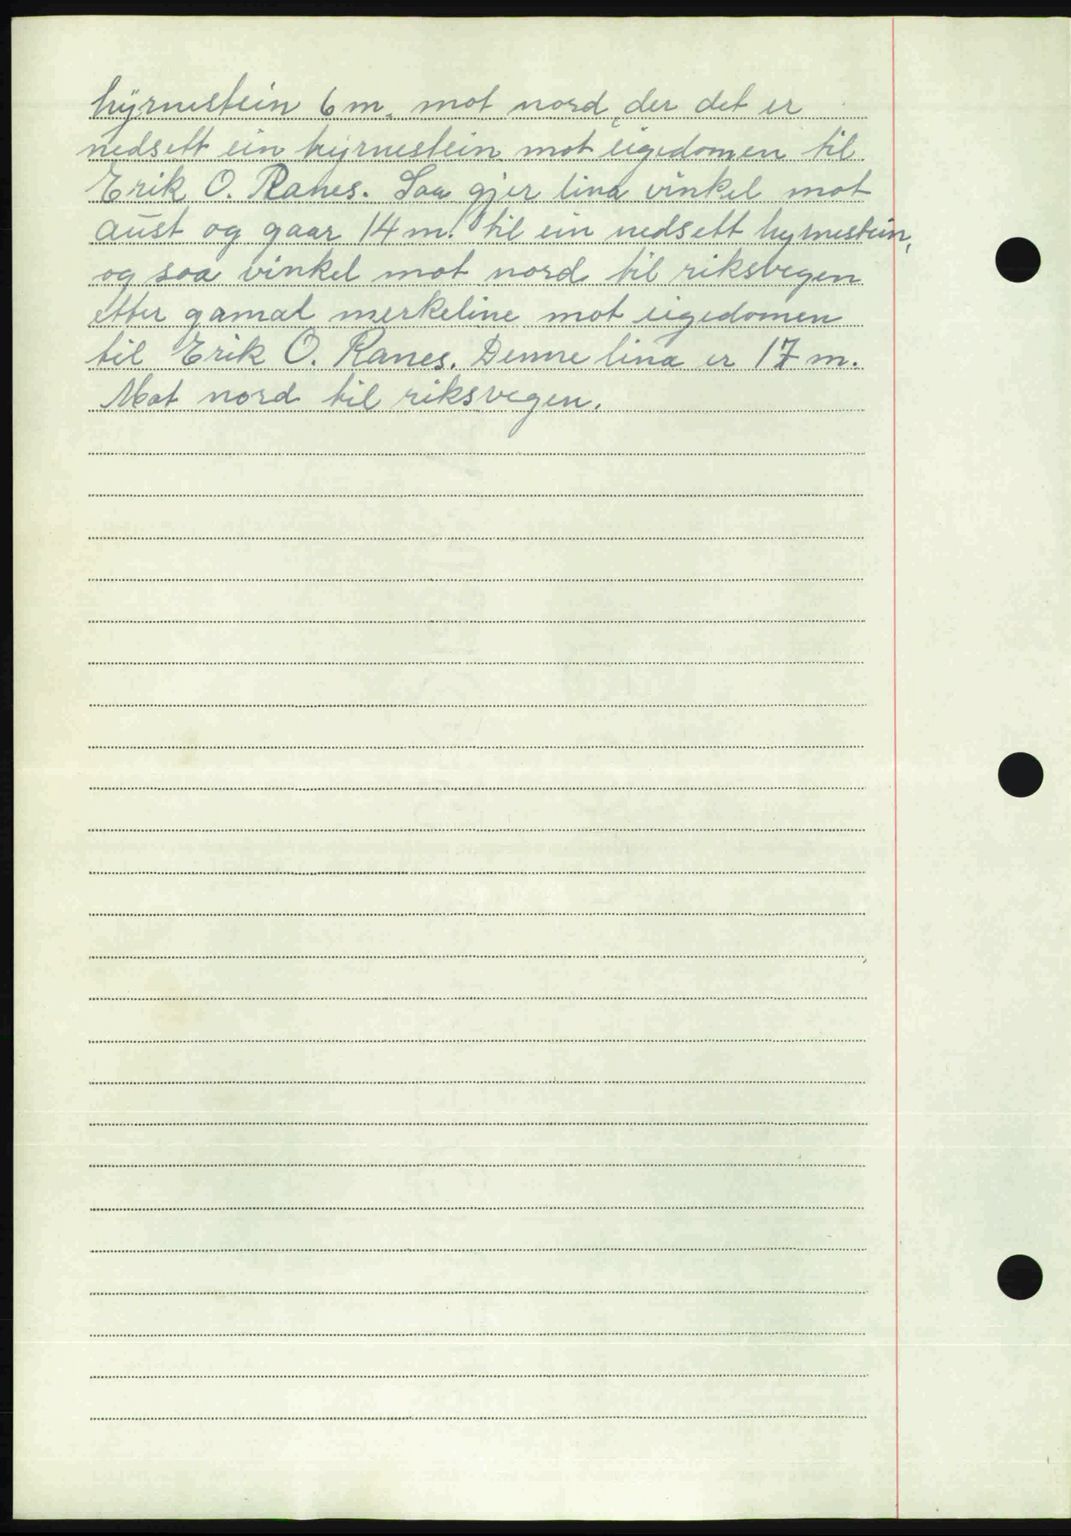 hyrnestein 6 m. mot nord, der det er
nedsett ein hyrnestein mot eigedomen til
Erik O. Ranes. Saa gjer lina vinkel mot
aust og gaar 14 m. til ein nedsett hyrnestein,
og soa vinkel mot nord til riksvegen
etter gamal merkeline mot eigedomen
til Erik O. Ranes. Denne lina er 17 m.
Mot nord til riksvegen.